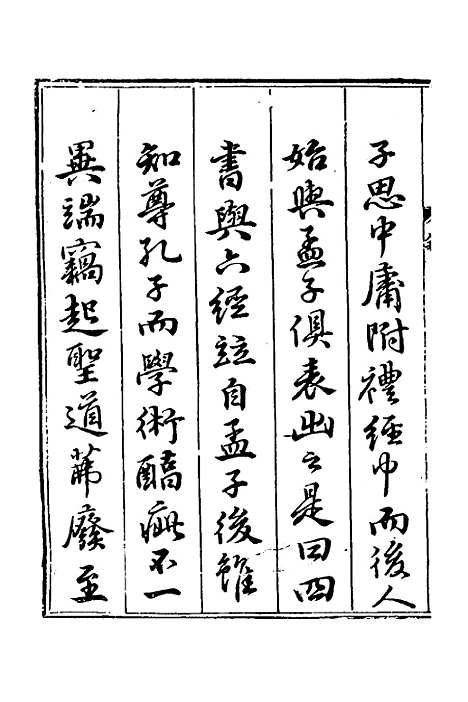 子思中庸附禮經中而後人
始與孟子俱表出之是曰四
書與六經竝自孟子後雖
知尊孔子而學術醇疵不一
異端竊起聖道茀廢至